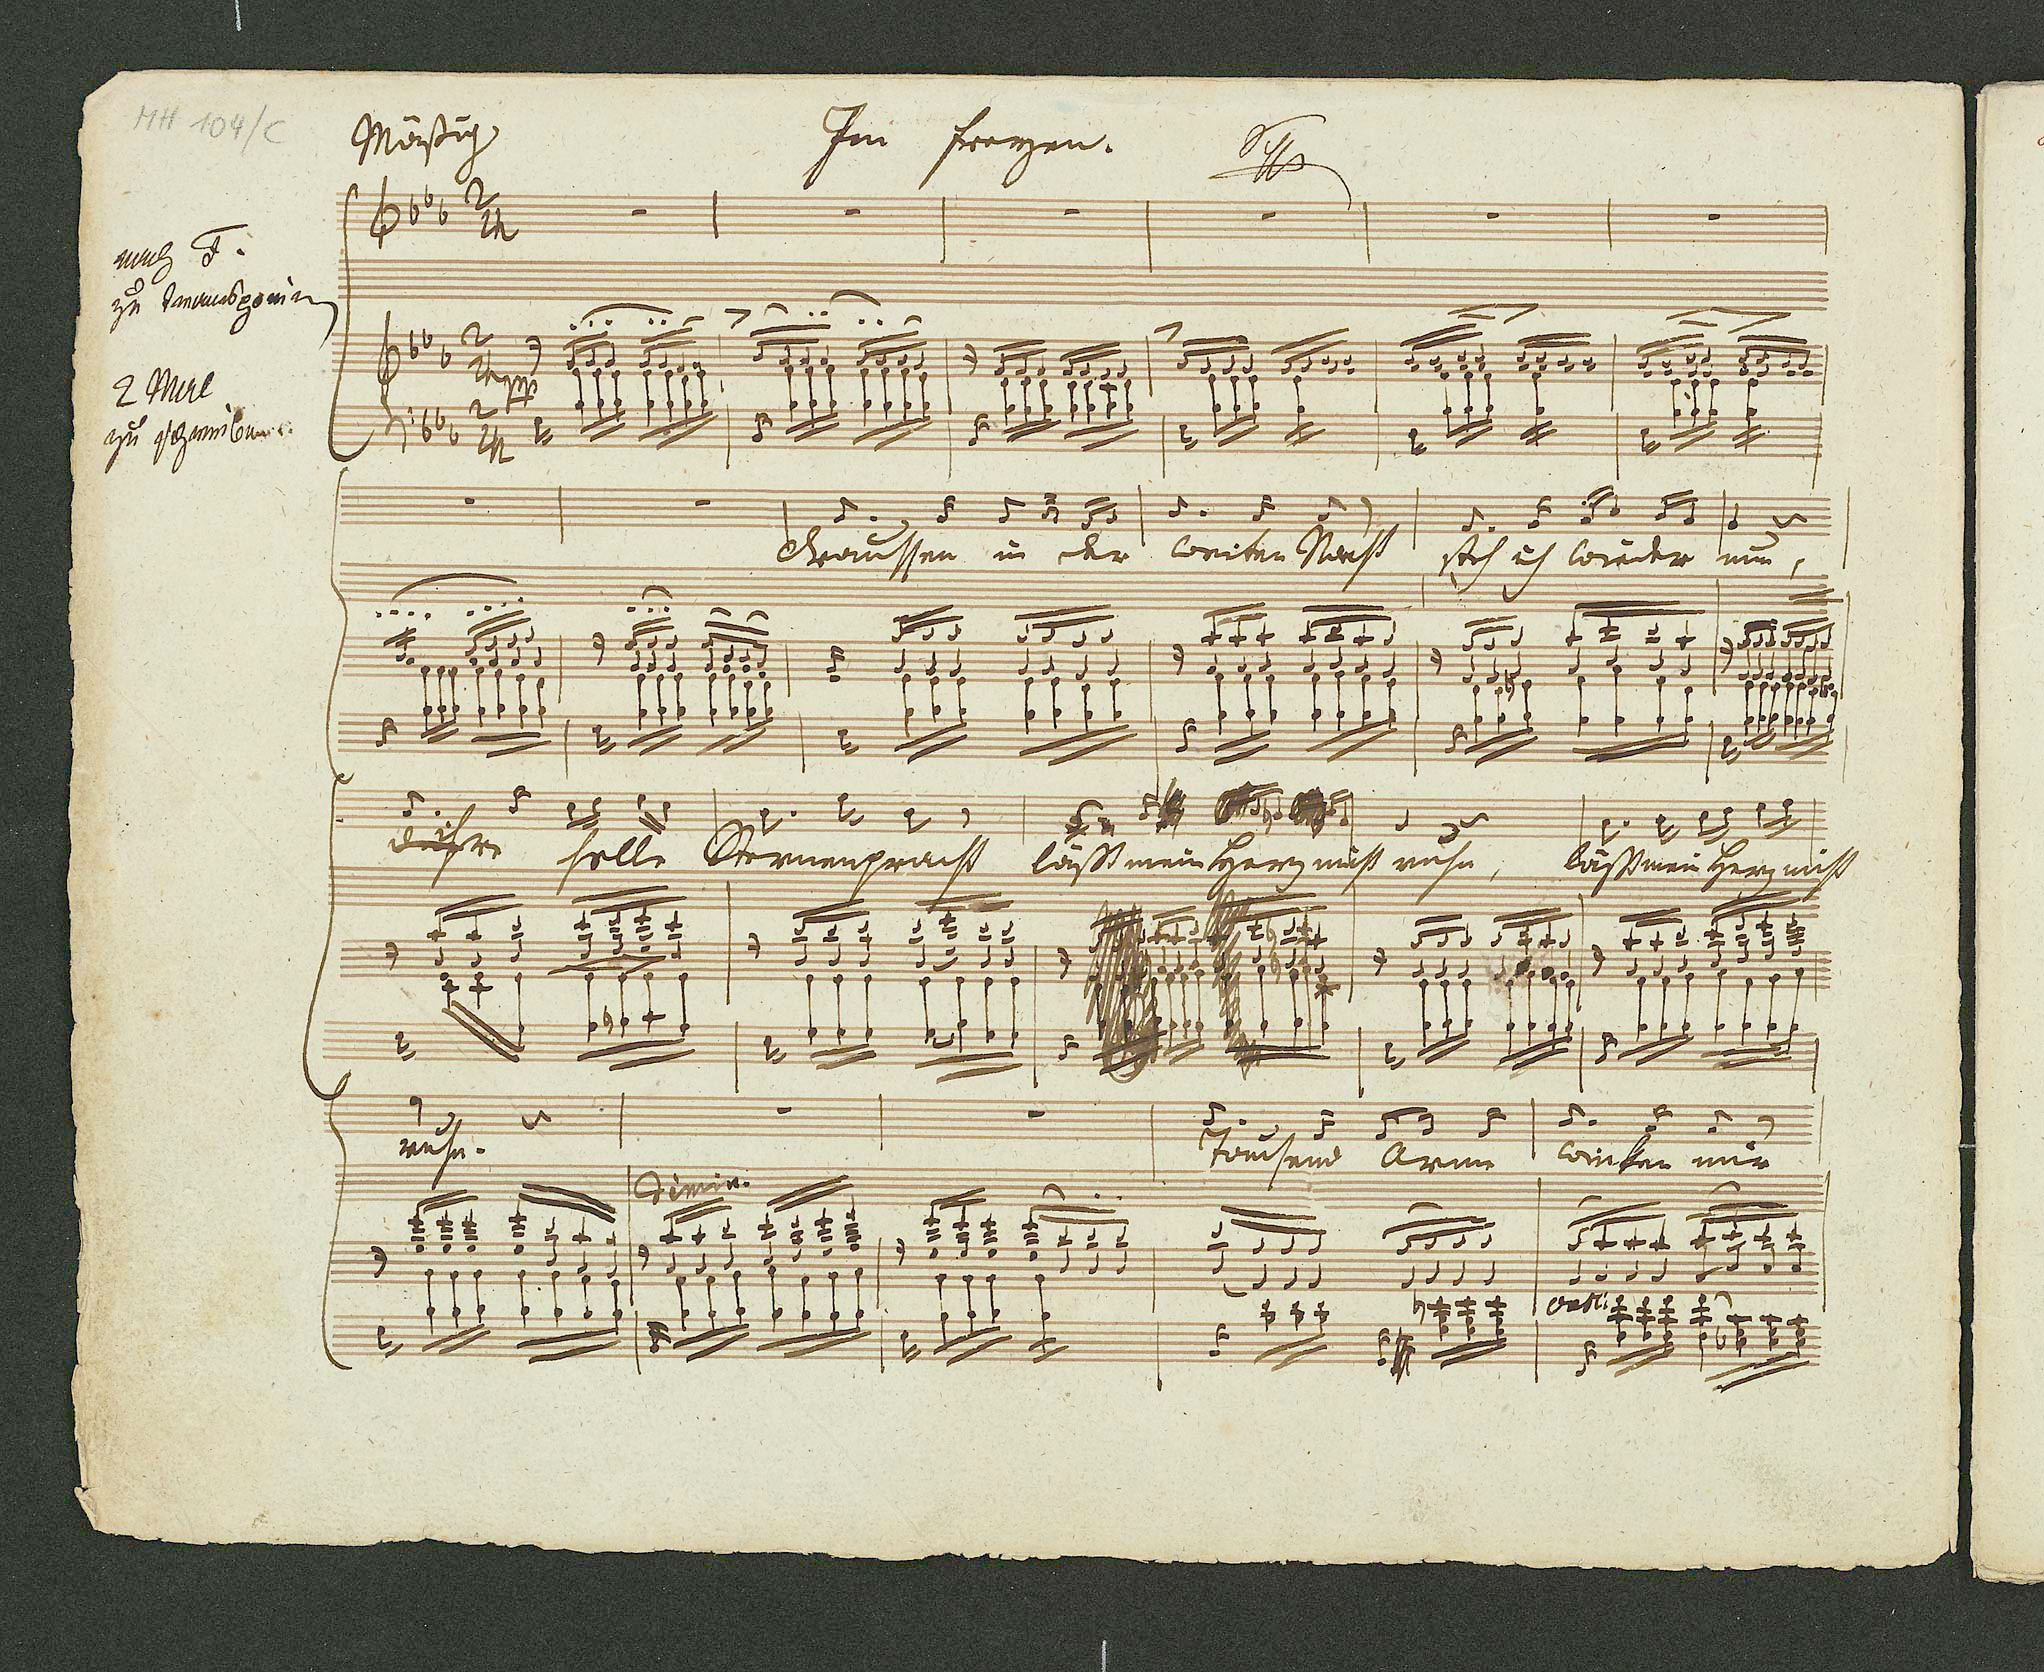 MH 104/C
Mäßig
Im Freyen.
nach F.
zu transponiren
2 Mal
zu schreiben
2/4 2/4 pp 2/4
Draussen in der weiten Nacht steh ich wieder nun,
ihre helle Sternenpracht läßt mein Herz nicht ruhn, läßt mein Herz nicht
ruhn. Tausend Arme winken mir
Dimin.